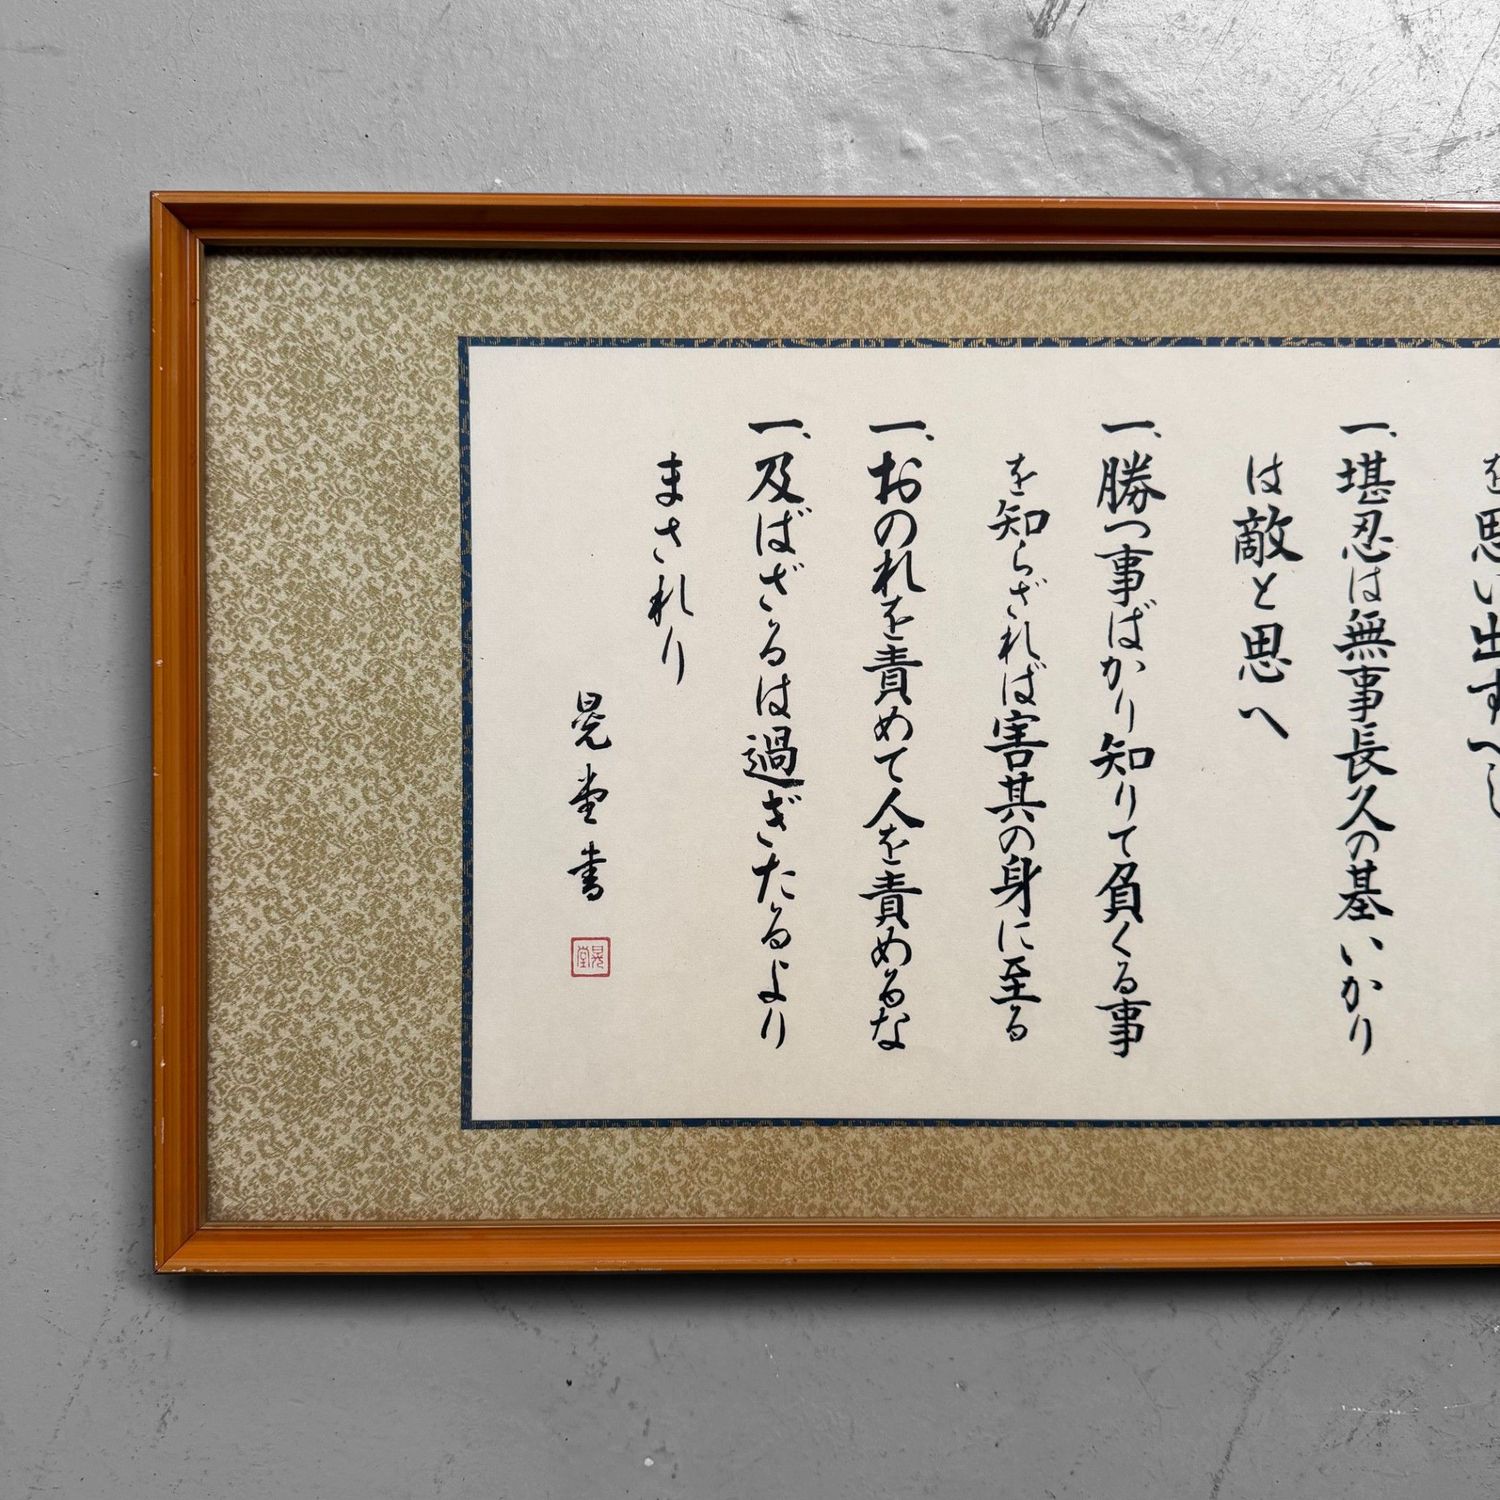 を思い出すべし
一、堪忍は無事長久の基いかり
は敵と思へ
一、勝つ事ばかり知りて負くる事
を知らざれば害其の身に至る
一、おのれを責めて人を責めるな
一、及ばざるは過ぎたるより
まされり
晃堂書
晃堂